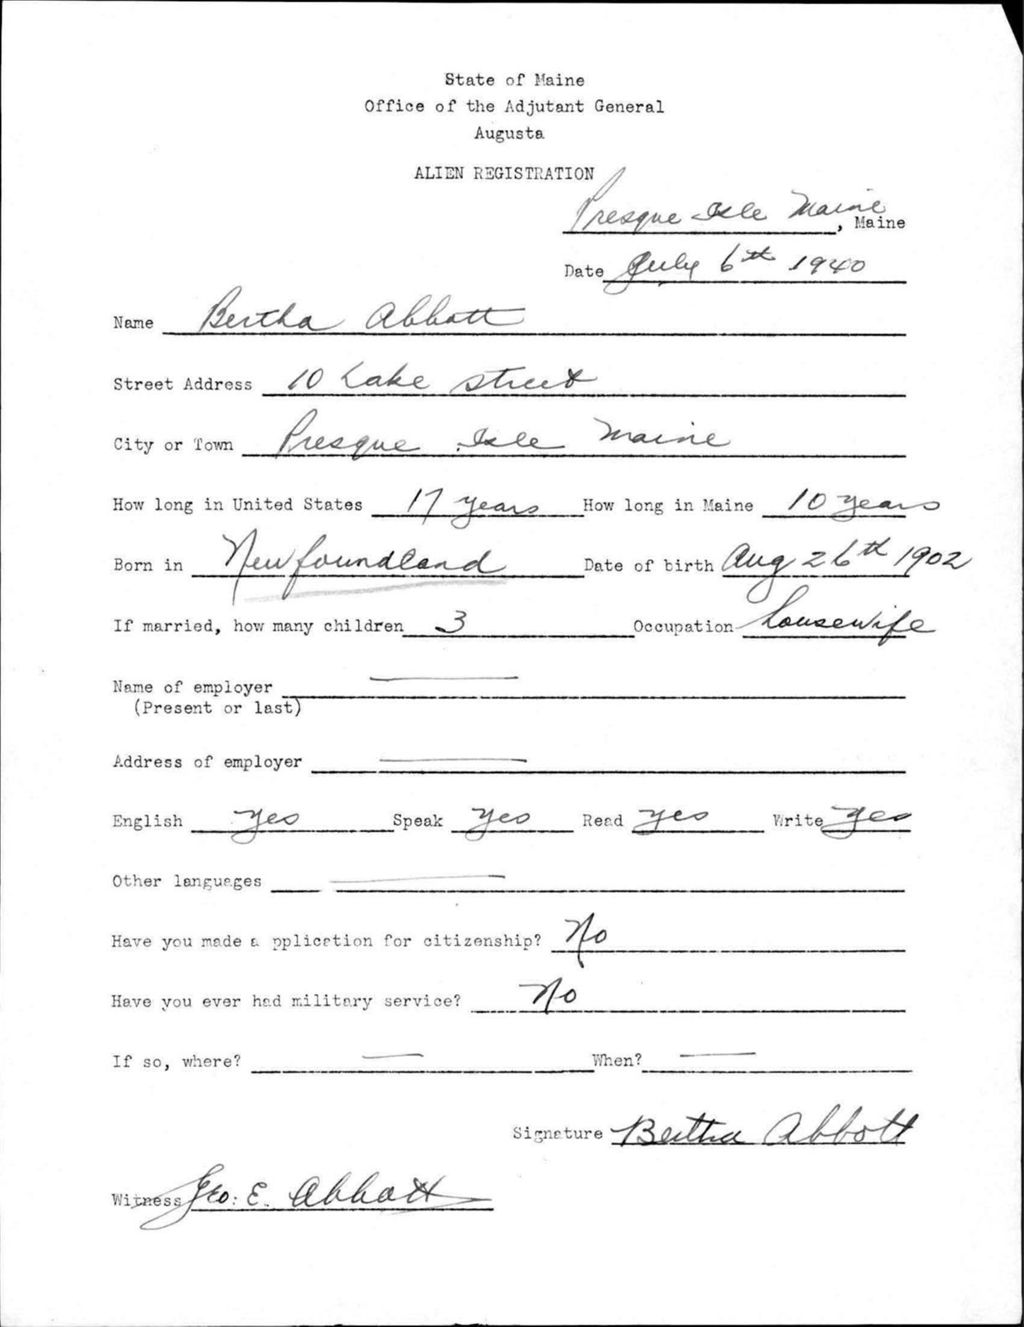 State of Maine
Office of the Adjutant General
Augusta
ALIEN REGISTRATION
Presque Isle Maine, Maine
Date July 6th 1940
Name Bertha Abbott
Street Address 10 Lake street
City or Town Presque Isle Maine
How long in United States 17 years How long in Maine 10 years
Born in Newfoundland Date of birth Aug 26th 1902
If married, how many children 3 Occupation housewife
Name of employer
(Present or last)
Address of employer
English Yes Speak Yes Read Yes Write Yes
Other languages
Have you made a pplication for citizenship? No
Have you ever had military service? No
If so, where? When?
Signature Bertha Abbott
Witness Geo. E. Abbott